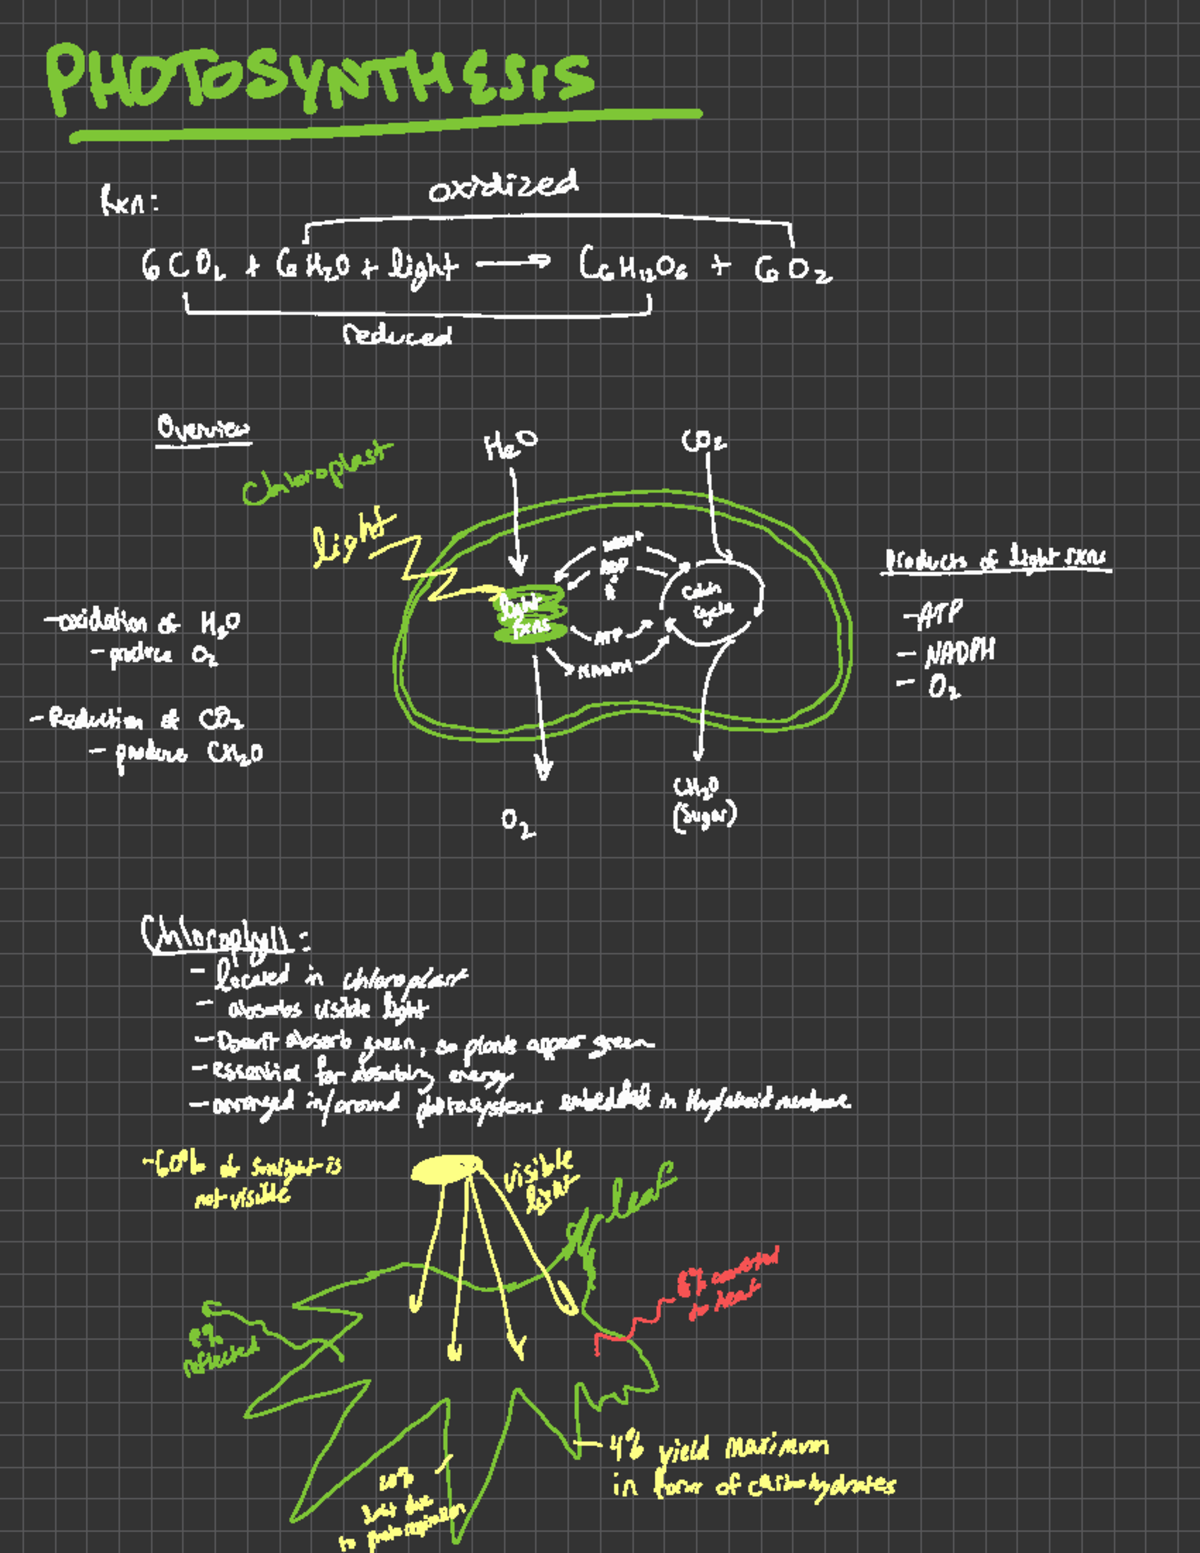 PHOTOSYNTHESIS
Rxn:
oxidized
6CO2 + 6H2O + light → C6H12O6 + 6O2
reduced
Overview
Chloroplast
light
H2O
CO2
ADP
light
Rxns
Calvin
Cycle
ATP
NADPH
O2
CH2O
(Sugar)
-oxidation of H2O
- produce O2
- Reduction of CO2
- produce CH2O
Products of light rxns
- ATP
- NADPH
- O2
Chlorophyll:
- located in chloroplast
- absorbs visible light
- Doesn't absorb green, so plants appear green
- essential for absorbing energy
- arranged in/around photosystems embedded in thylakoid membrane
~60% of sunlight is
not visible
visible
light
leaf
8%
reflected
8% converted
to heat
20%
lost due
to photorespiration
4% yield maximum
in form of carbohydrates